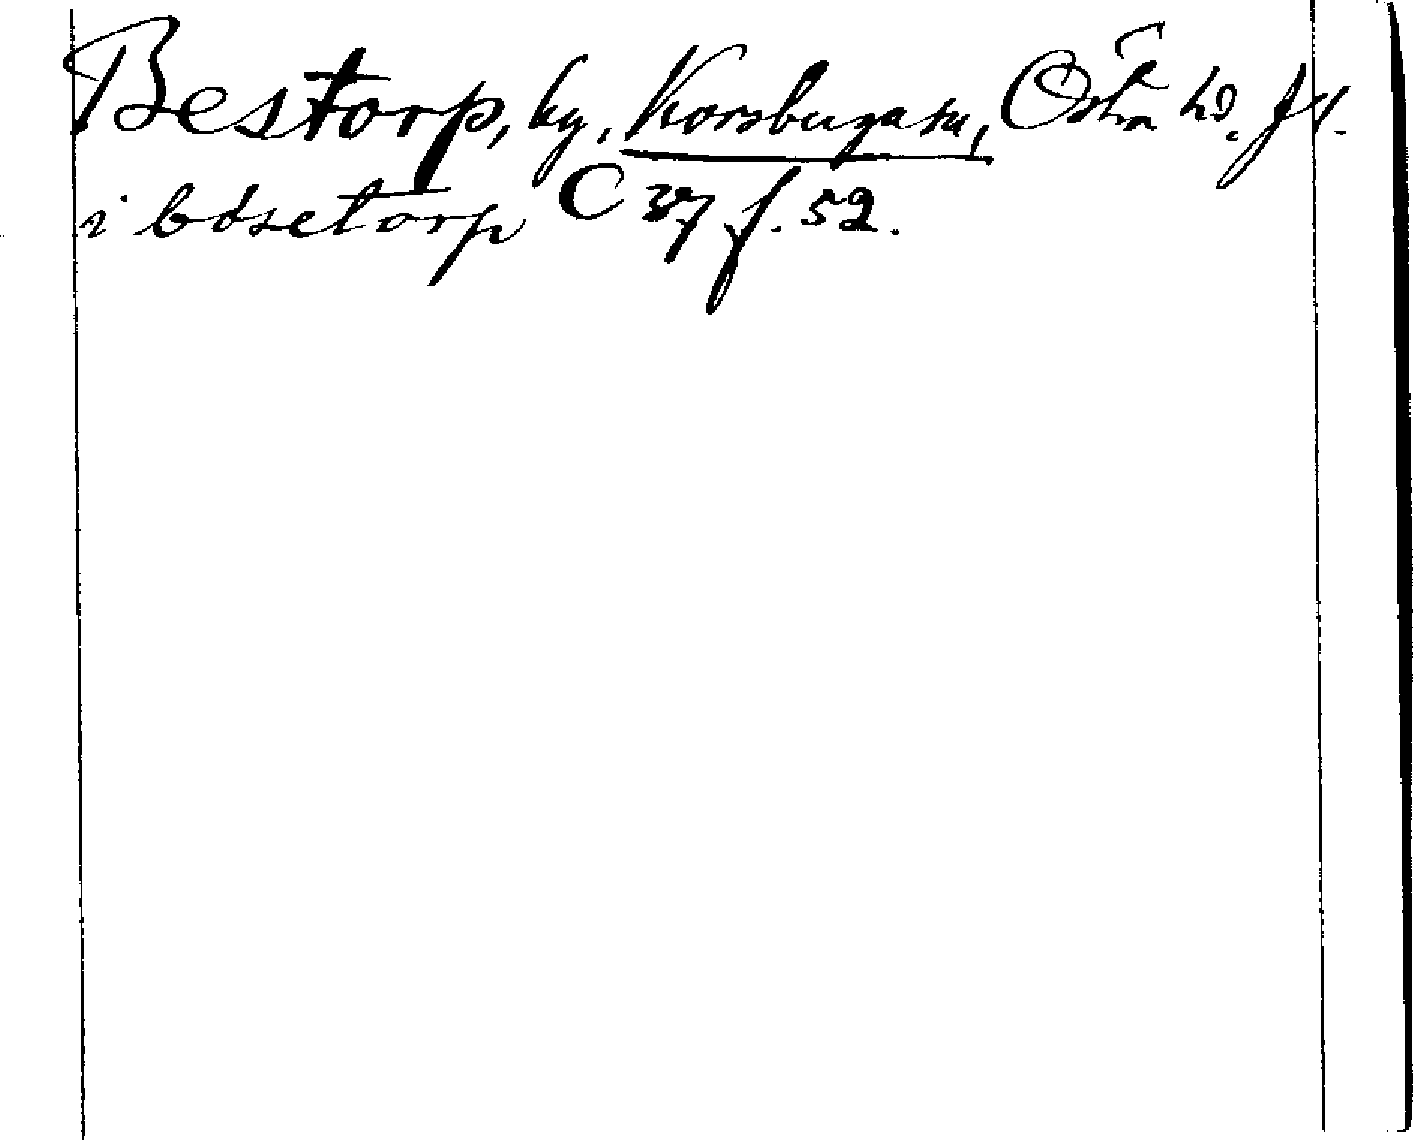 Bestorp, by, Korsberga sn, Östra hd. Jkl.
i bösetorp C 37 f. 52.